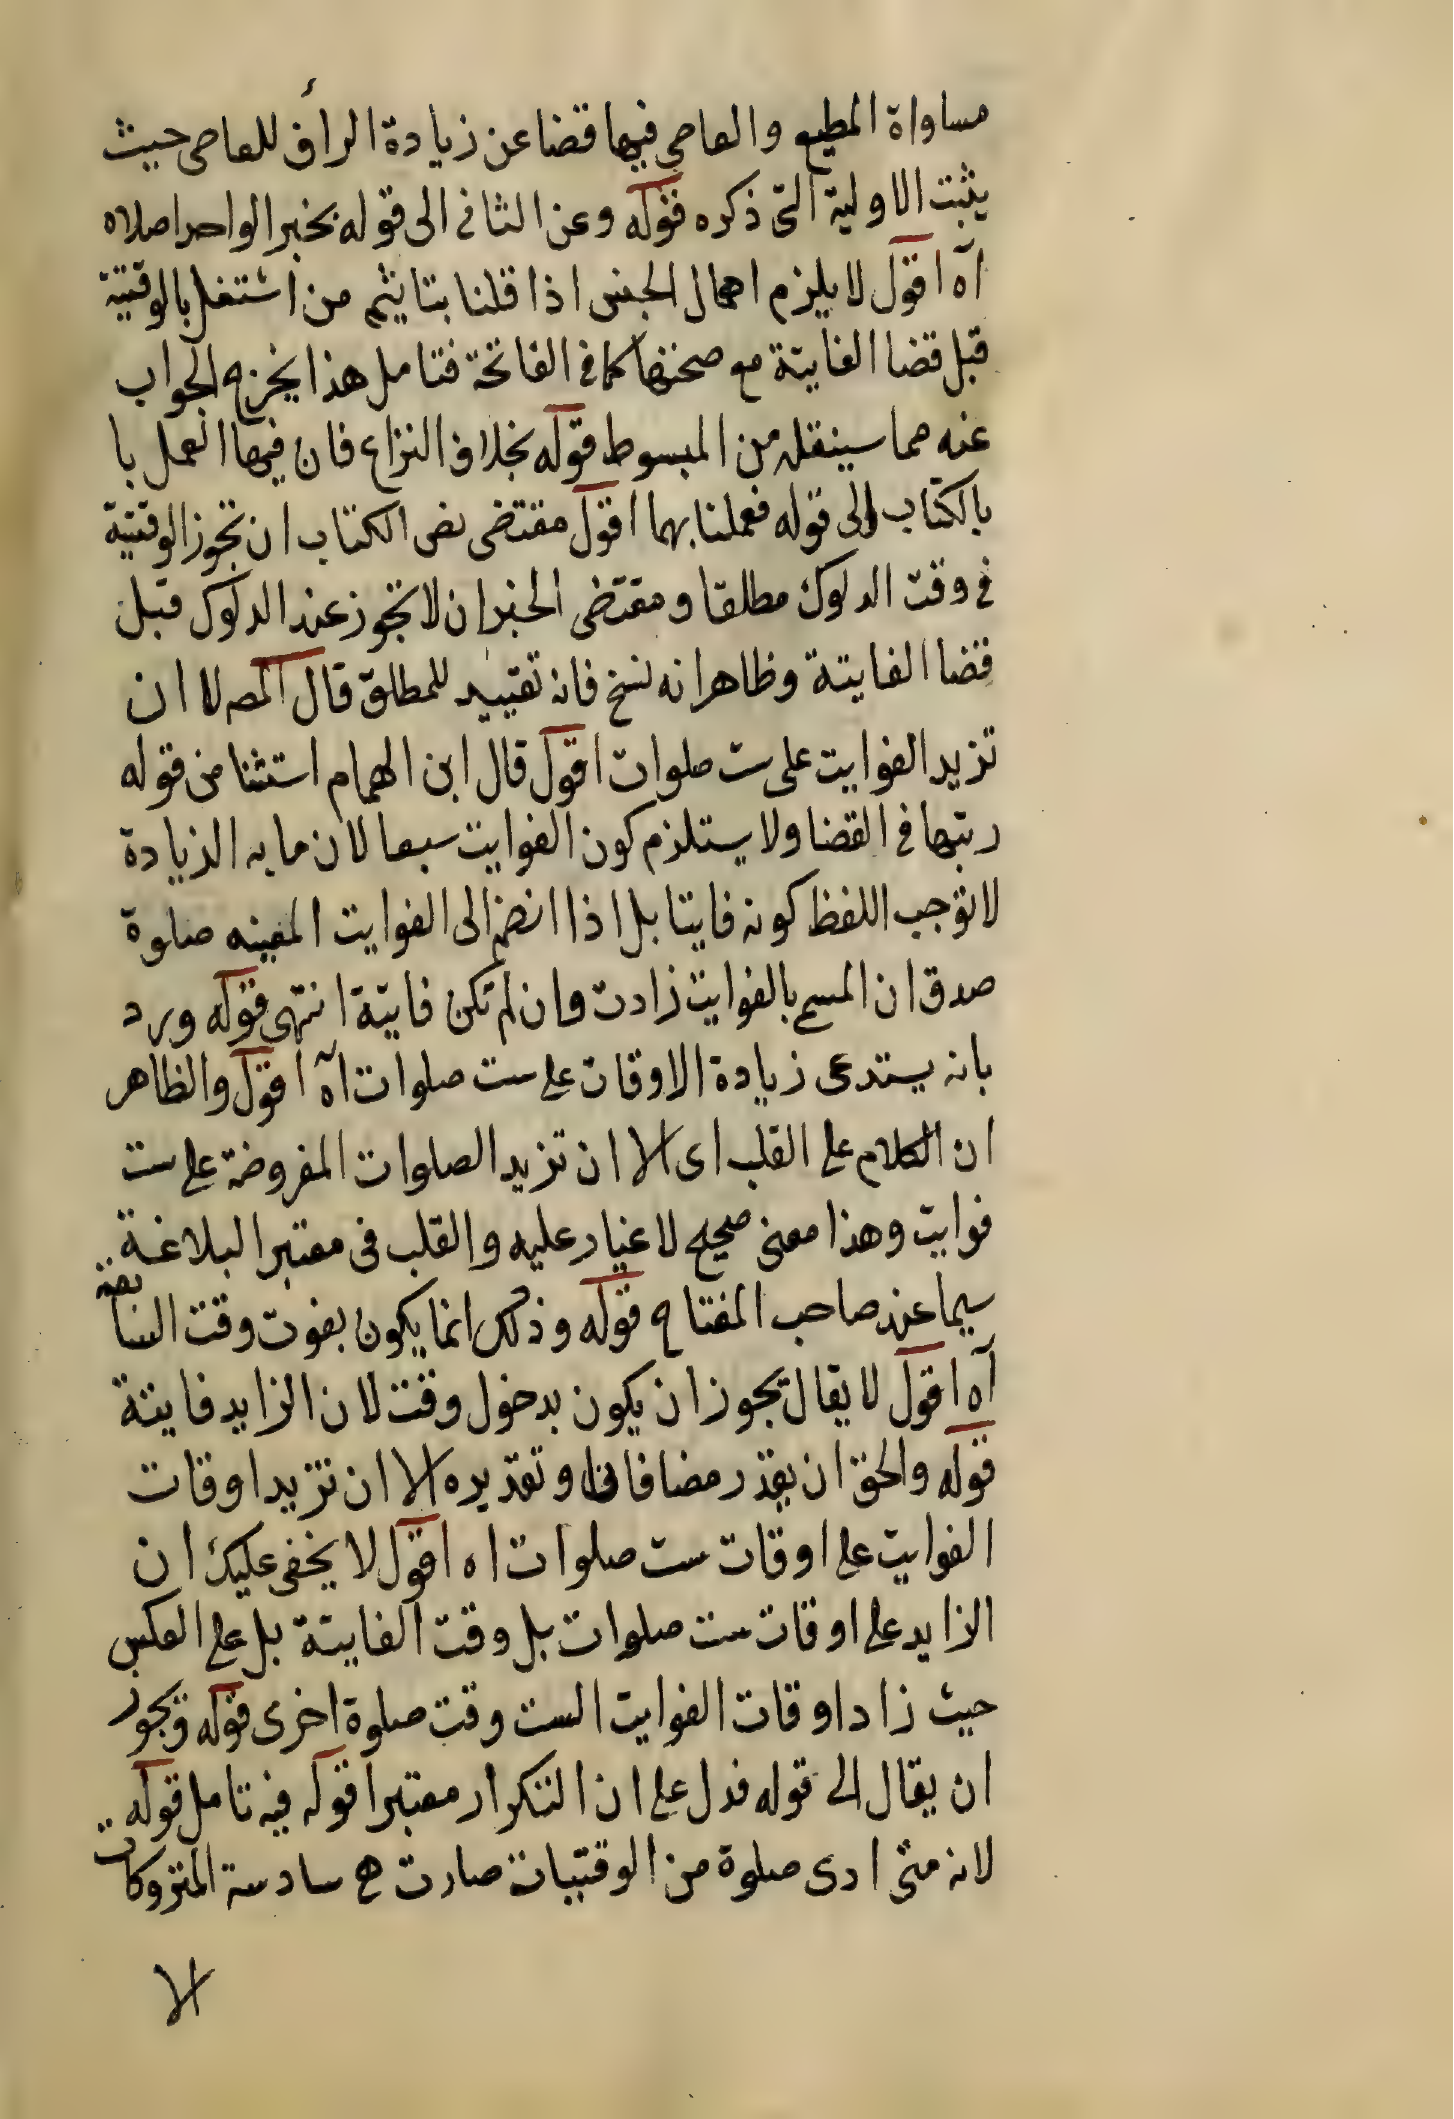 مساواة المطيع والعاصي فيها قضا عن زيادة الرأف للعاصى حيث
يثبت الاولية التى ذكره قوله وعن الثانى الى قوله بخبر الواحد اصلا اه
اه اقول لا يلزم اهمال الخبر اذا قلنا بتاثيم من اشتغل بالوقتية
قبل قضا الفايتة مع صحتها كما فى الفاتحة فتامل هذا يخرج الجواب
عنه مما سينقله من المبسوط قوله بخلاف النزاع فان فيها العمل با
بالكتاب والى قوله فعملنا بهما اقول مقتضى نص الكتاب ان تجوز الوقتية
فى وقت الدلوك مطلقا ومقتضى الخبر ان لا تجوز عند الدلوك قبل
قضا الفايتة وظاهر انه نسخ فانه تقييد للمطلق قال المص الا ان
تزيد الفوايت على ست صلوات اقول قال ابن الهمام استثنا من قوله
رتبها فى القضا ولا يستلزم كون الفوايت سبعا لان ما به الزيادة
لا توجب اللفظ كونه فايتا بل اذا انضم الى الفوايت المعينه صلوة
صدق ان المسمى بالفوايت زادت وان لم تكن فايتة انتهى قوله ورد
بانه يستدعى زيادة الاوقات على ست صلوات اه اقول والظاهر
ان الكلام على القلب اى الا ان تزيد الصلوات المفروضة على ست
فوايت وهذا معنى صحيح لا غبار عليه والقلب فى معتبر البلاغة
سيما عند صاحب المفتاح قوله وذلك انما يكون بفوت وقت السابعة
اه اقول لا يقال يجوز ان يكون بدخول وقت لان الزايد فايتة
قوله والحق ان يقدر مضافا وتقديره الا ان تزيد اوقات
الفوايت على اوقات ست صلوات اه اقول لا يخفى عليك ان
الزايد على اوقات ست صلوات بل وقت الفايتة بل على العكس
حيث زاد اوقات الفوايت الست وقت صلوة اخرى قوله ويجوز
ان يقال الى قوله فدل على ان التكرار معتبر اقوله فيه تامل قوله
لانه متى ادى صلوة من الوقتيات صارت هى سادسة المتروكات
الا